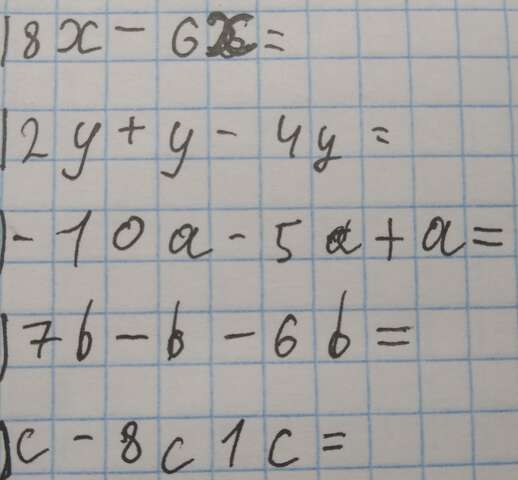 ) 8x - 6x =
) 2y + y - 4y =
) - 10a - 5a + a =
) 7b - b - 6b =
) c - 8c 1c =